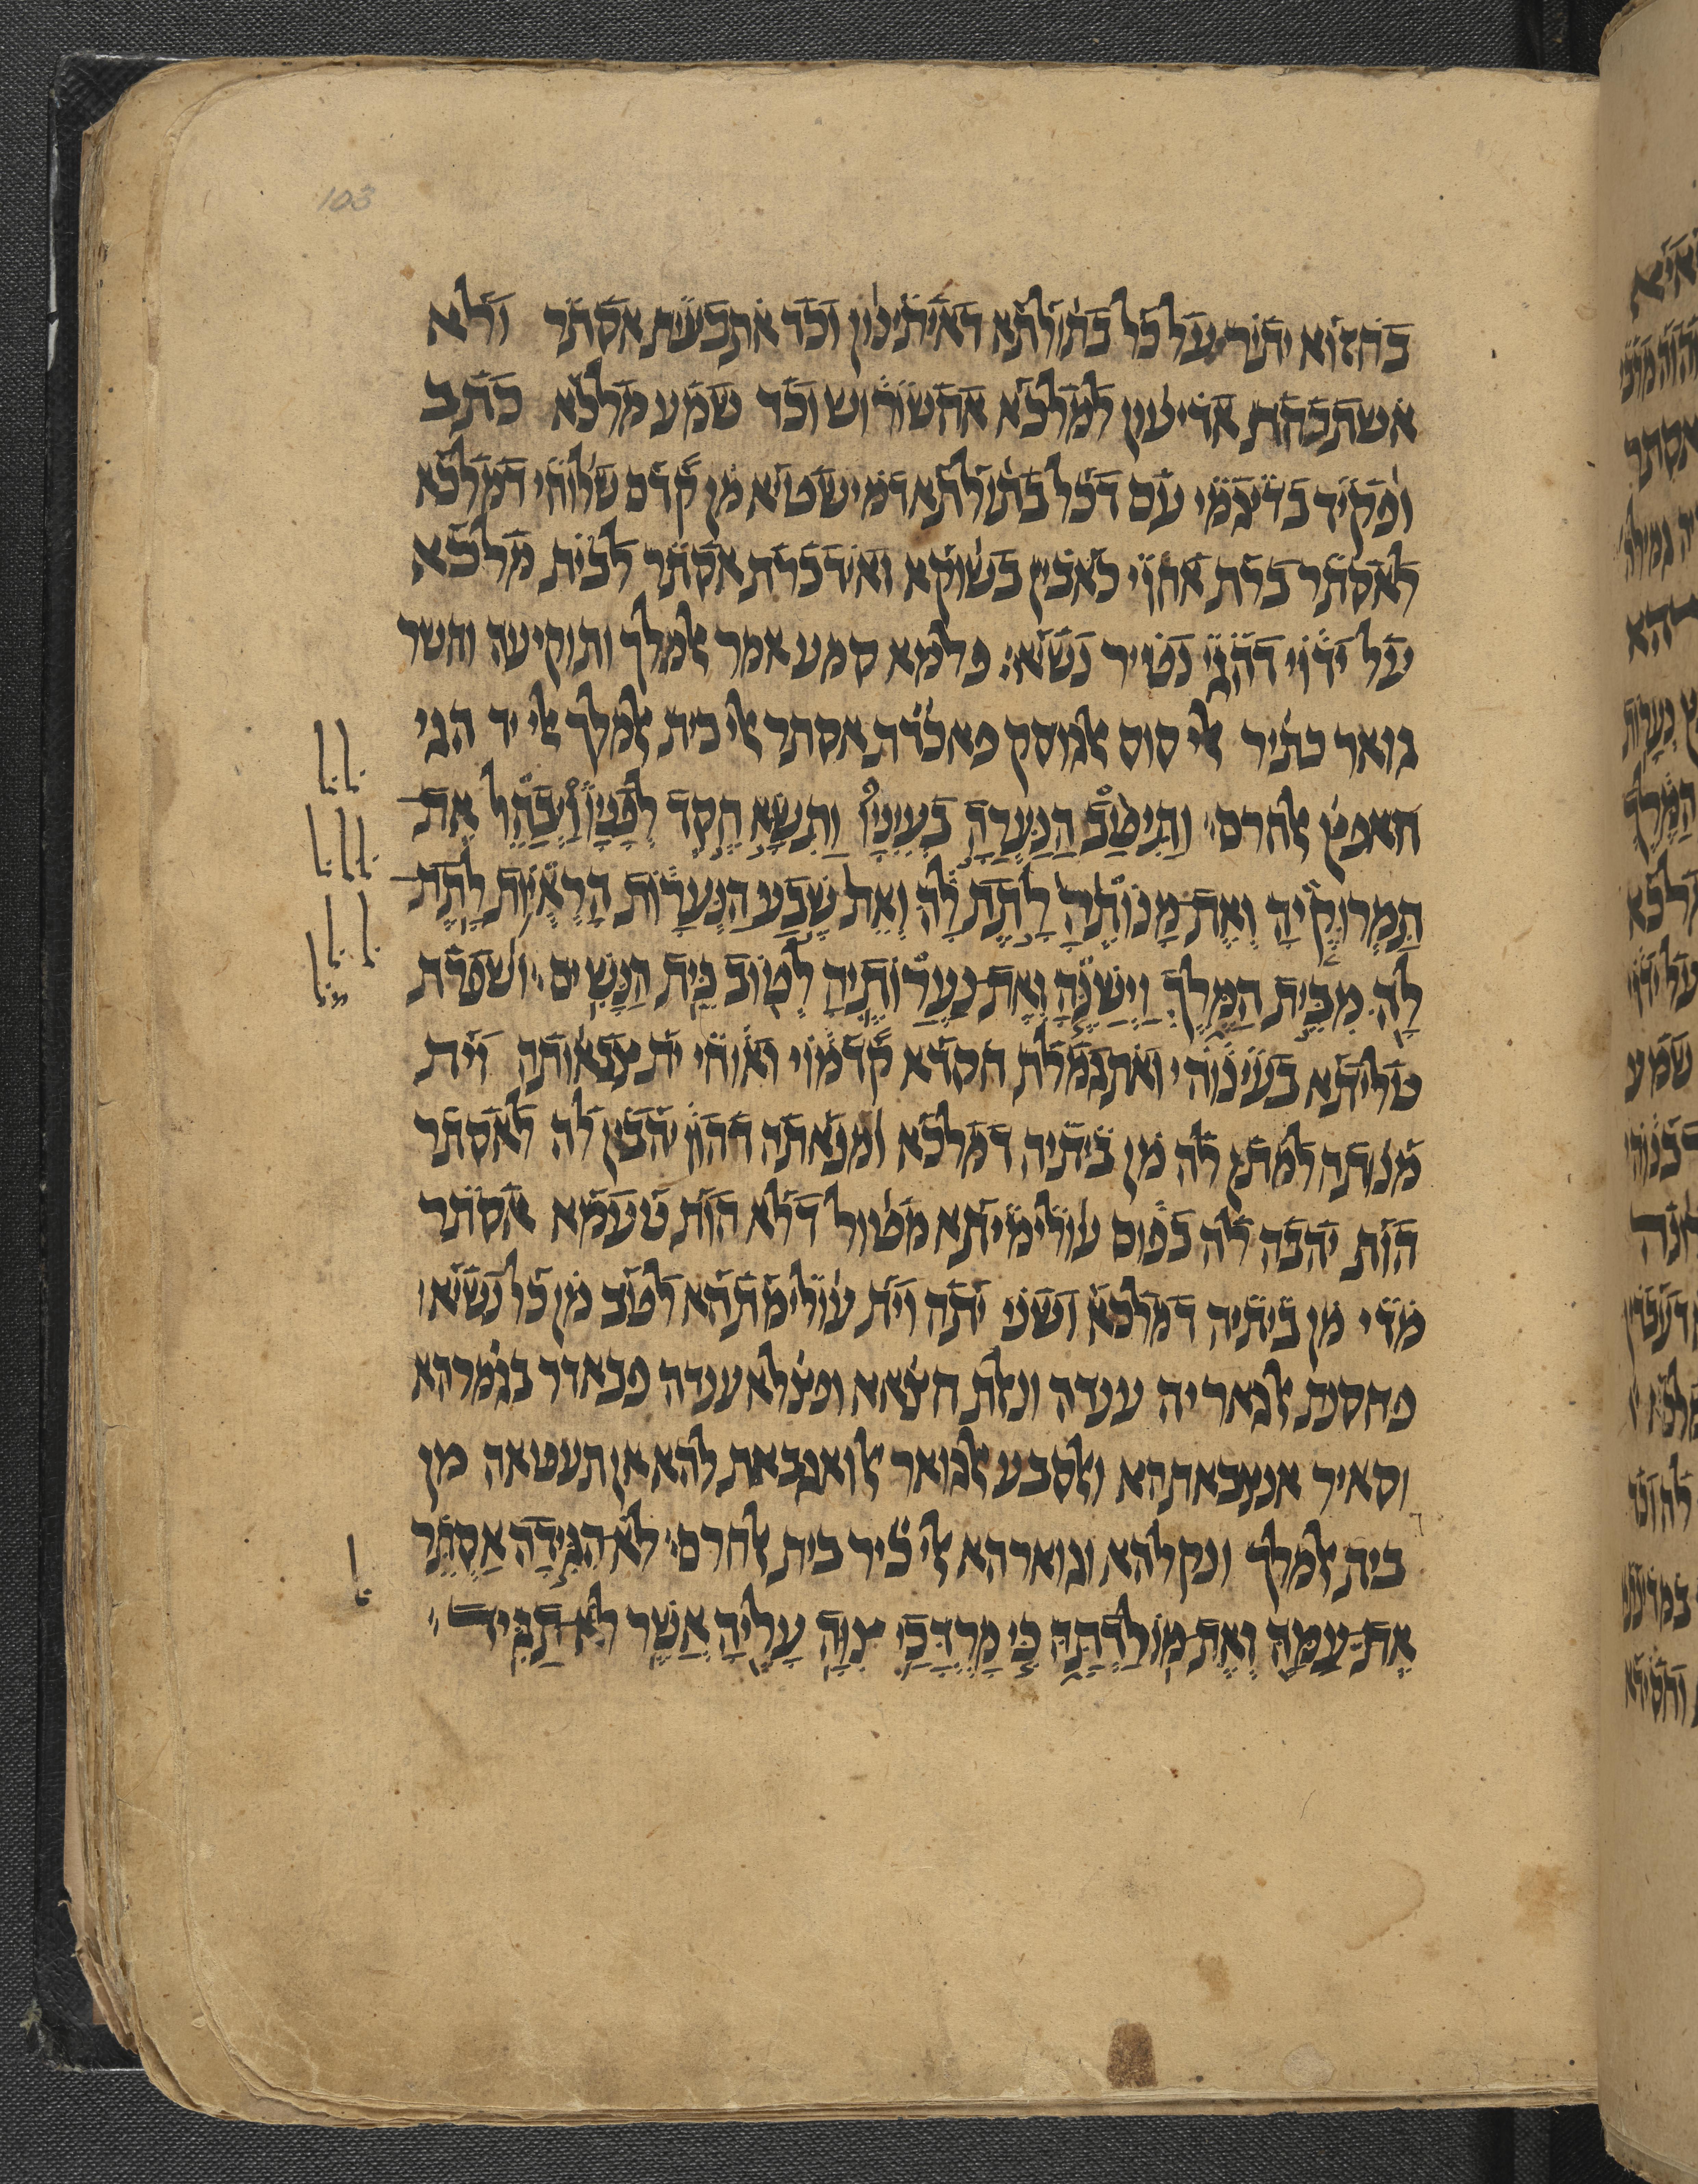 103
בחזוא יתיר על כל בתולתא דאיתינון וכד אתבעית אסתר ולא
אשתכחת אודיעון למלכא אחשורוש וכד שמע מלכא כתב
ופקיד בדיגמי עם דכל בתולתא דמישטיא מן קדם שלוחי דמלכא
לאסתר ברת אחוי לאפיק בשוקא ואידברת אסתר לבית מלכא
על ידוי דהגי נטיר נשיא: פלמא סמע אמר אלמלך ותוקיעה וחשר
גואר כתיר אלי סוס אלגוסק פאכדת אסתר אלי בית אלמלך אלי יד הגי
חאפץ אלחרם׃ וַתִּיטַב הַנַּעֲרָה בְעֵינָיו וַתִּשָּׂא חֶסֶד לְפָנָיו וַיְבַהֵל אֶת־
תַּמְרוּקֶיהָ וְאֶת־מָנוֹתֶהָ לָתֵת לָהּ וְאֵת שֶׁבַע הַנְּעָרוֹת הָרְאֻיוֹת לָתֶת־
לָהּ מִבֵּית הַמֶּלֶךְ וַיְשַׁנֶּהָ וְאֶת־נַעֲרוֹתֶיהָ לְטוֹב בֵּית הַנָּשִׁים׃ ושפרת
טליתא בעינוהי ואתגמלת חסדא קדמוי ואוחי ית צבאותה וית
מנותה למתן לה מן ביתיה דמלכא ומנאתה דהון יהבין לה לאסתר
הות יהבה לה בפום עולימיתא מטול דלא הות טעמא אסתר
מדי מן ביתיה דמלכא ושני יתה וית עולימתהא לטוב מן כל נשיא׃
פחסנת אלגאריה ענדה ונאלת חט̇אא ופצ̇לא ענדה פבאדר בגמרהא
וסאיר אנצבאתהא ואלסבע אלגואר אלואגבאת להא אן תעטאה מן
בית אלמלך ונקלהא וגוארהא אלי כ̇יר בית אלחרם׃ לֹא־הִגִּידָה אֶסְתֵּר
אֶת־עַמָּהּ וְאֶת־מוֹלַדְתָּהּ כִּי מָרְדֳּכַי צִוָּה עָלֶיהָ אֲשֶׁר לֹא־תַגִּיד׃